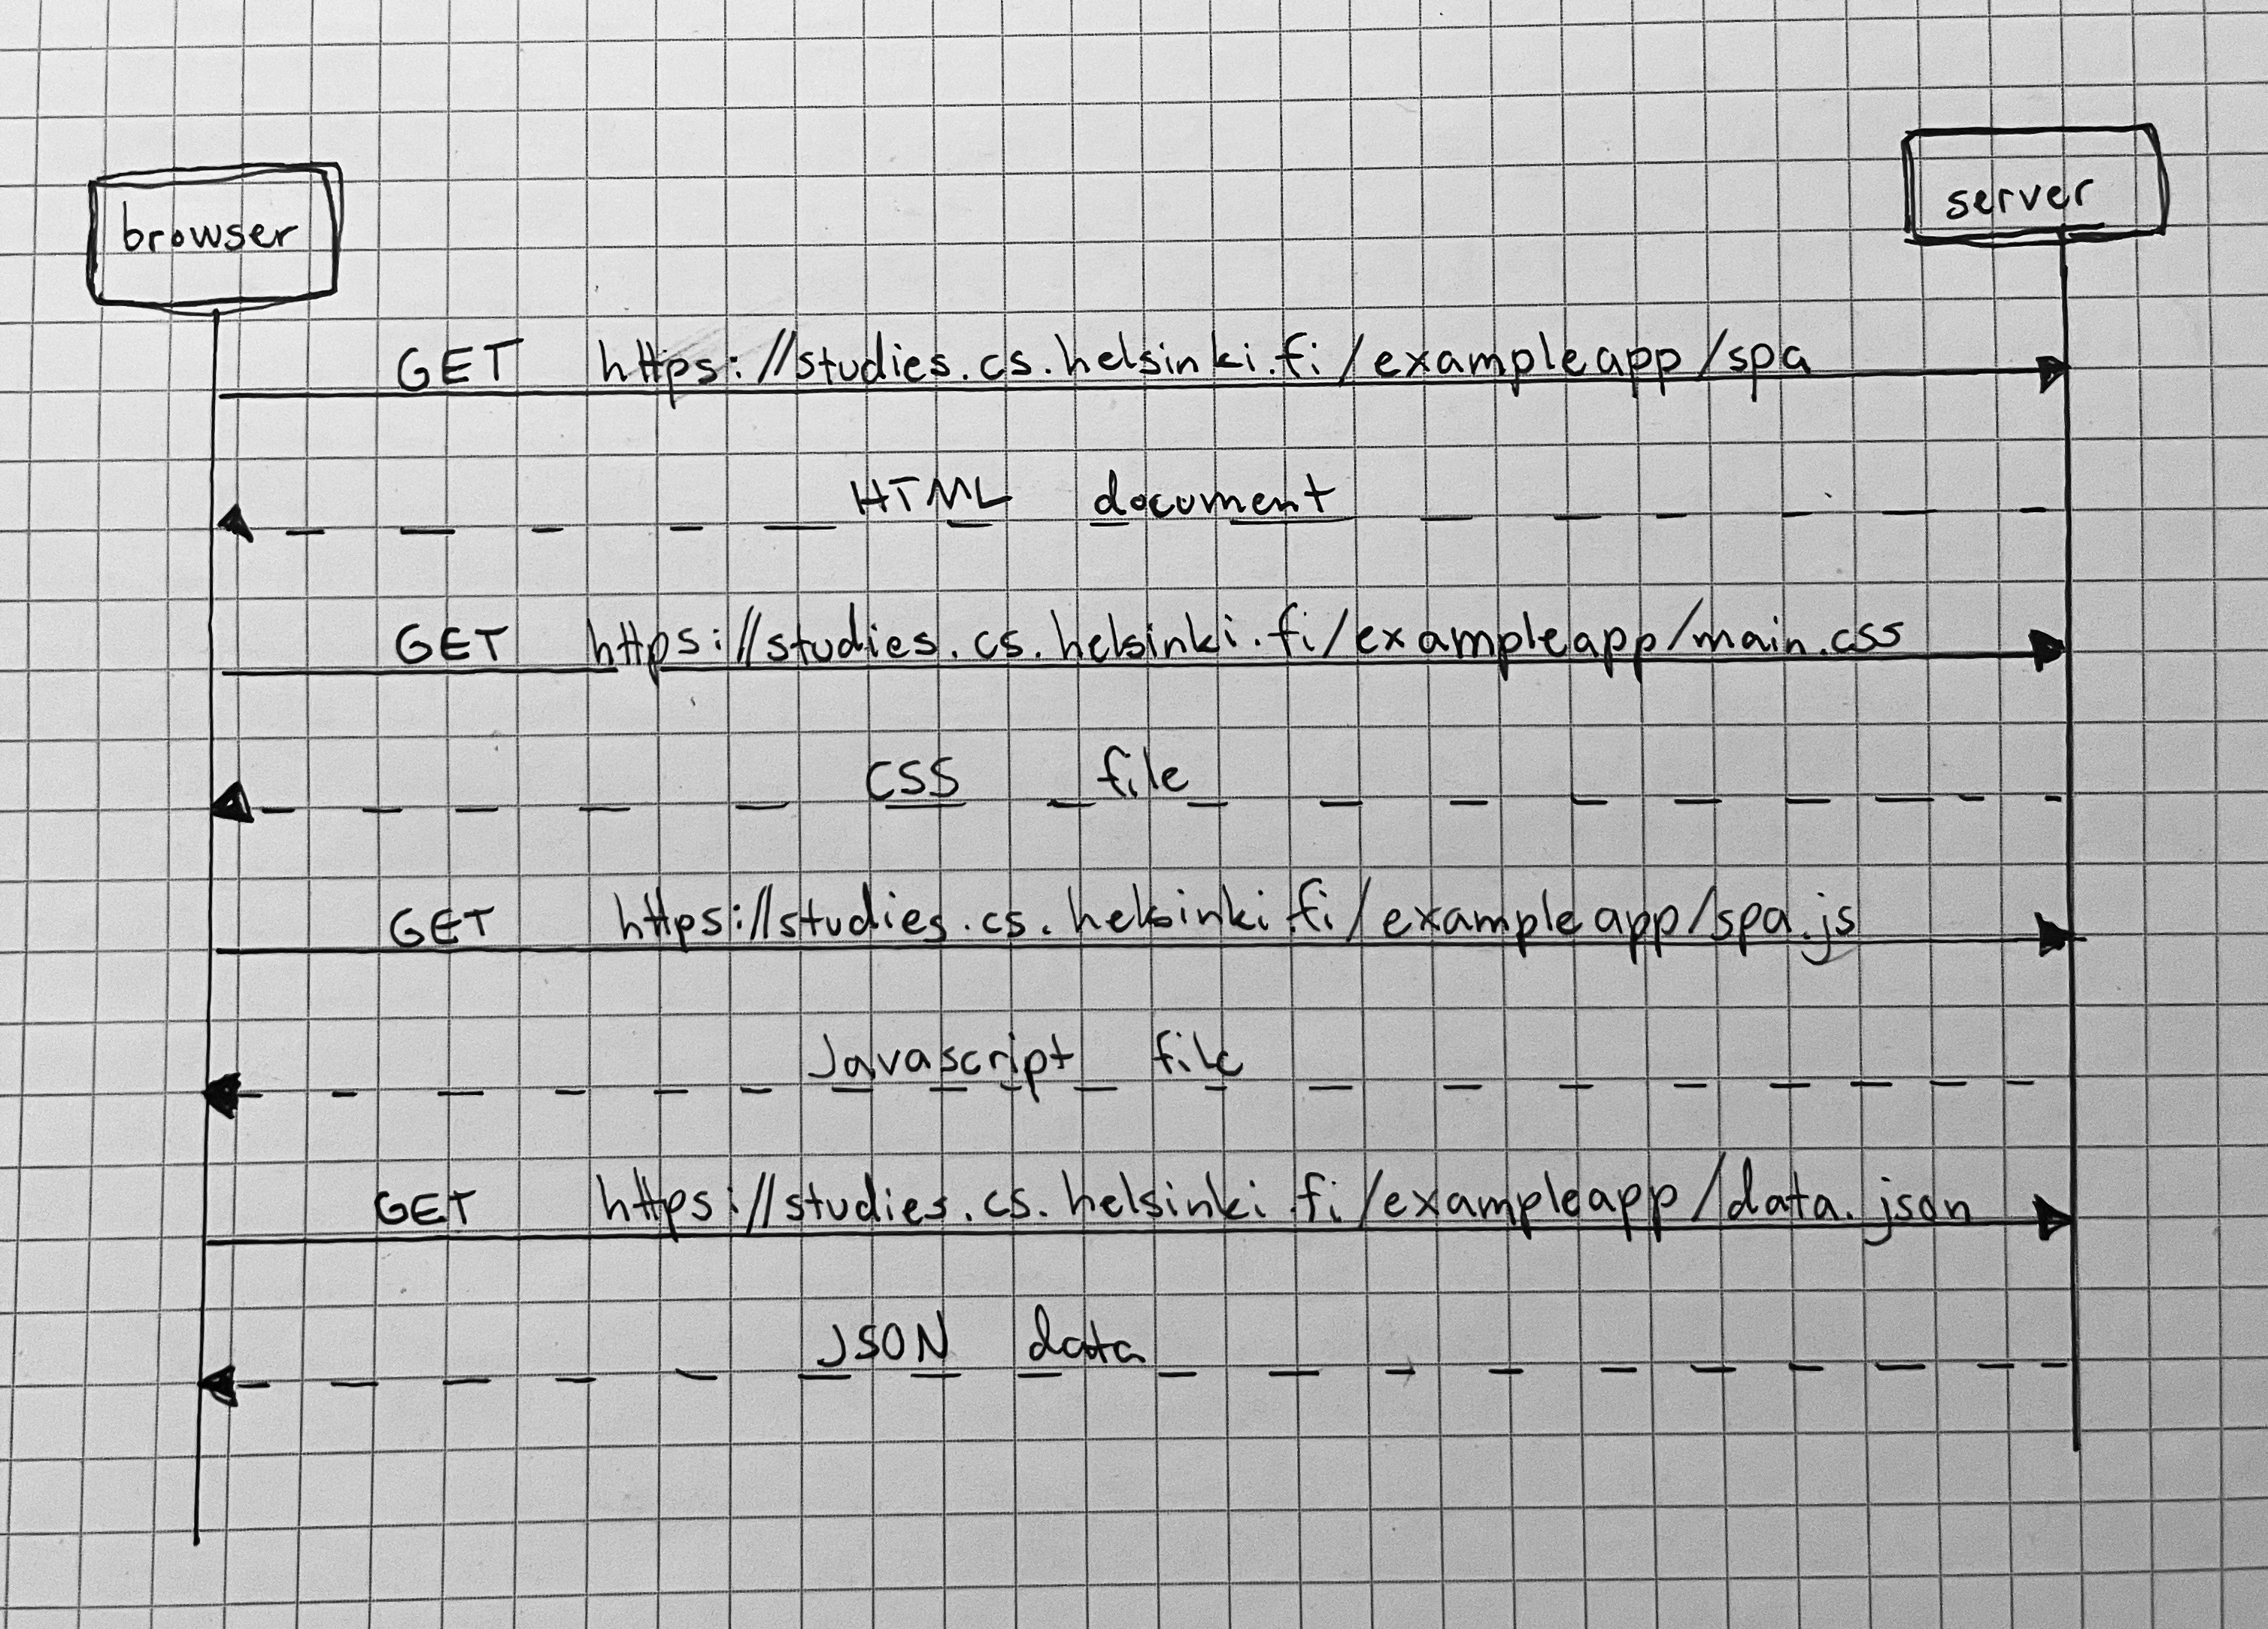 browser
server
GET https://studies.cs.helsinki.fi/exampleapp/spa
HTML document
GET https://studies.cs.helsinki.fi/exampleapp/main.css
CSS file
GET https://studies.cs.helsinki.fi/exampleapp/spa.js
Javascript file
GET https://studies.cs.helsinki.fi/exampleapp/data.json
JSON data